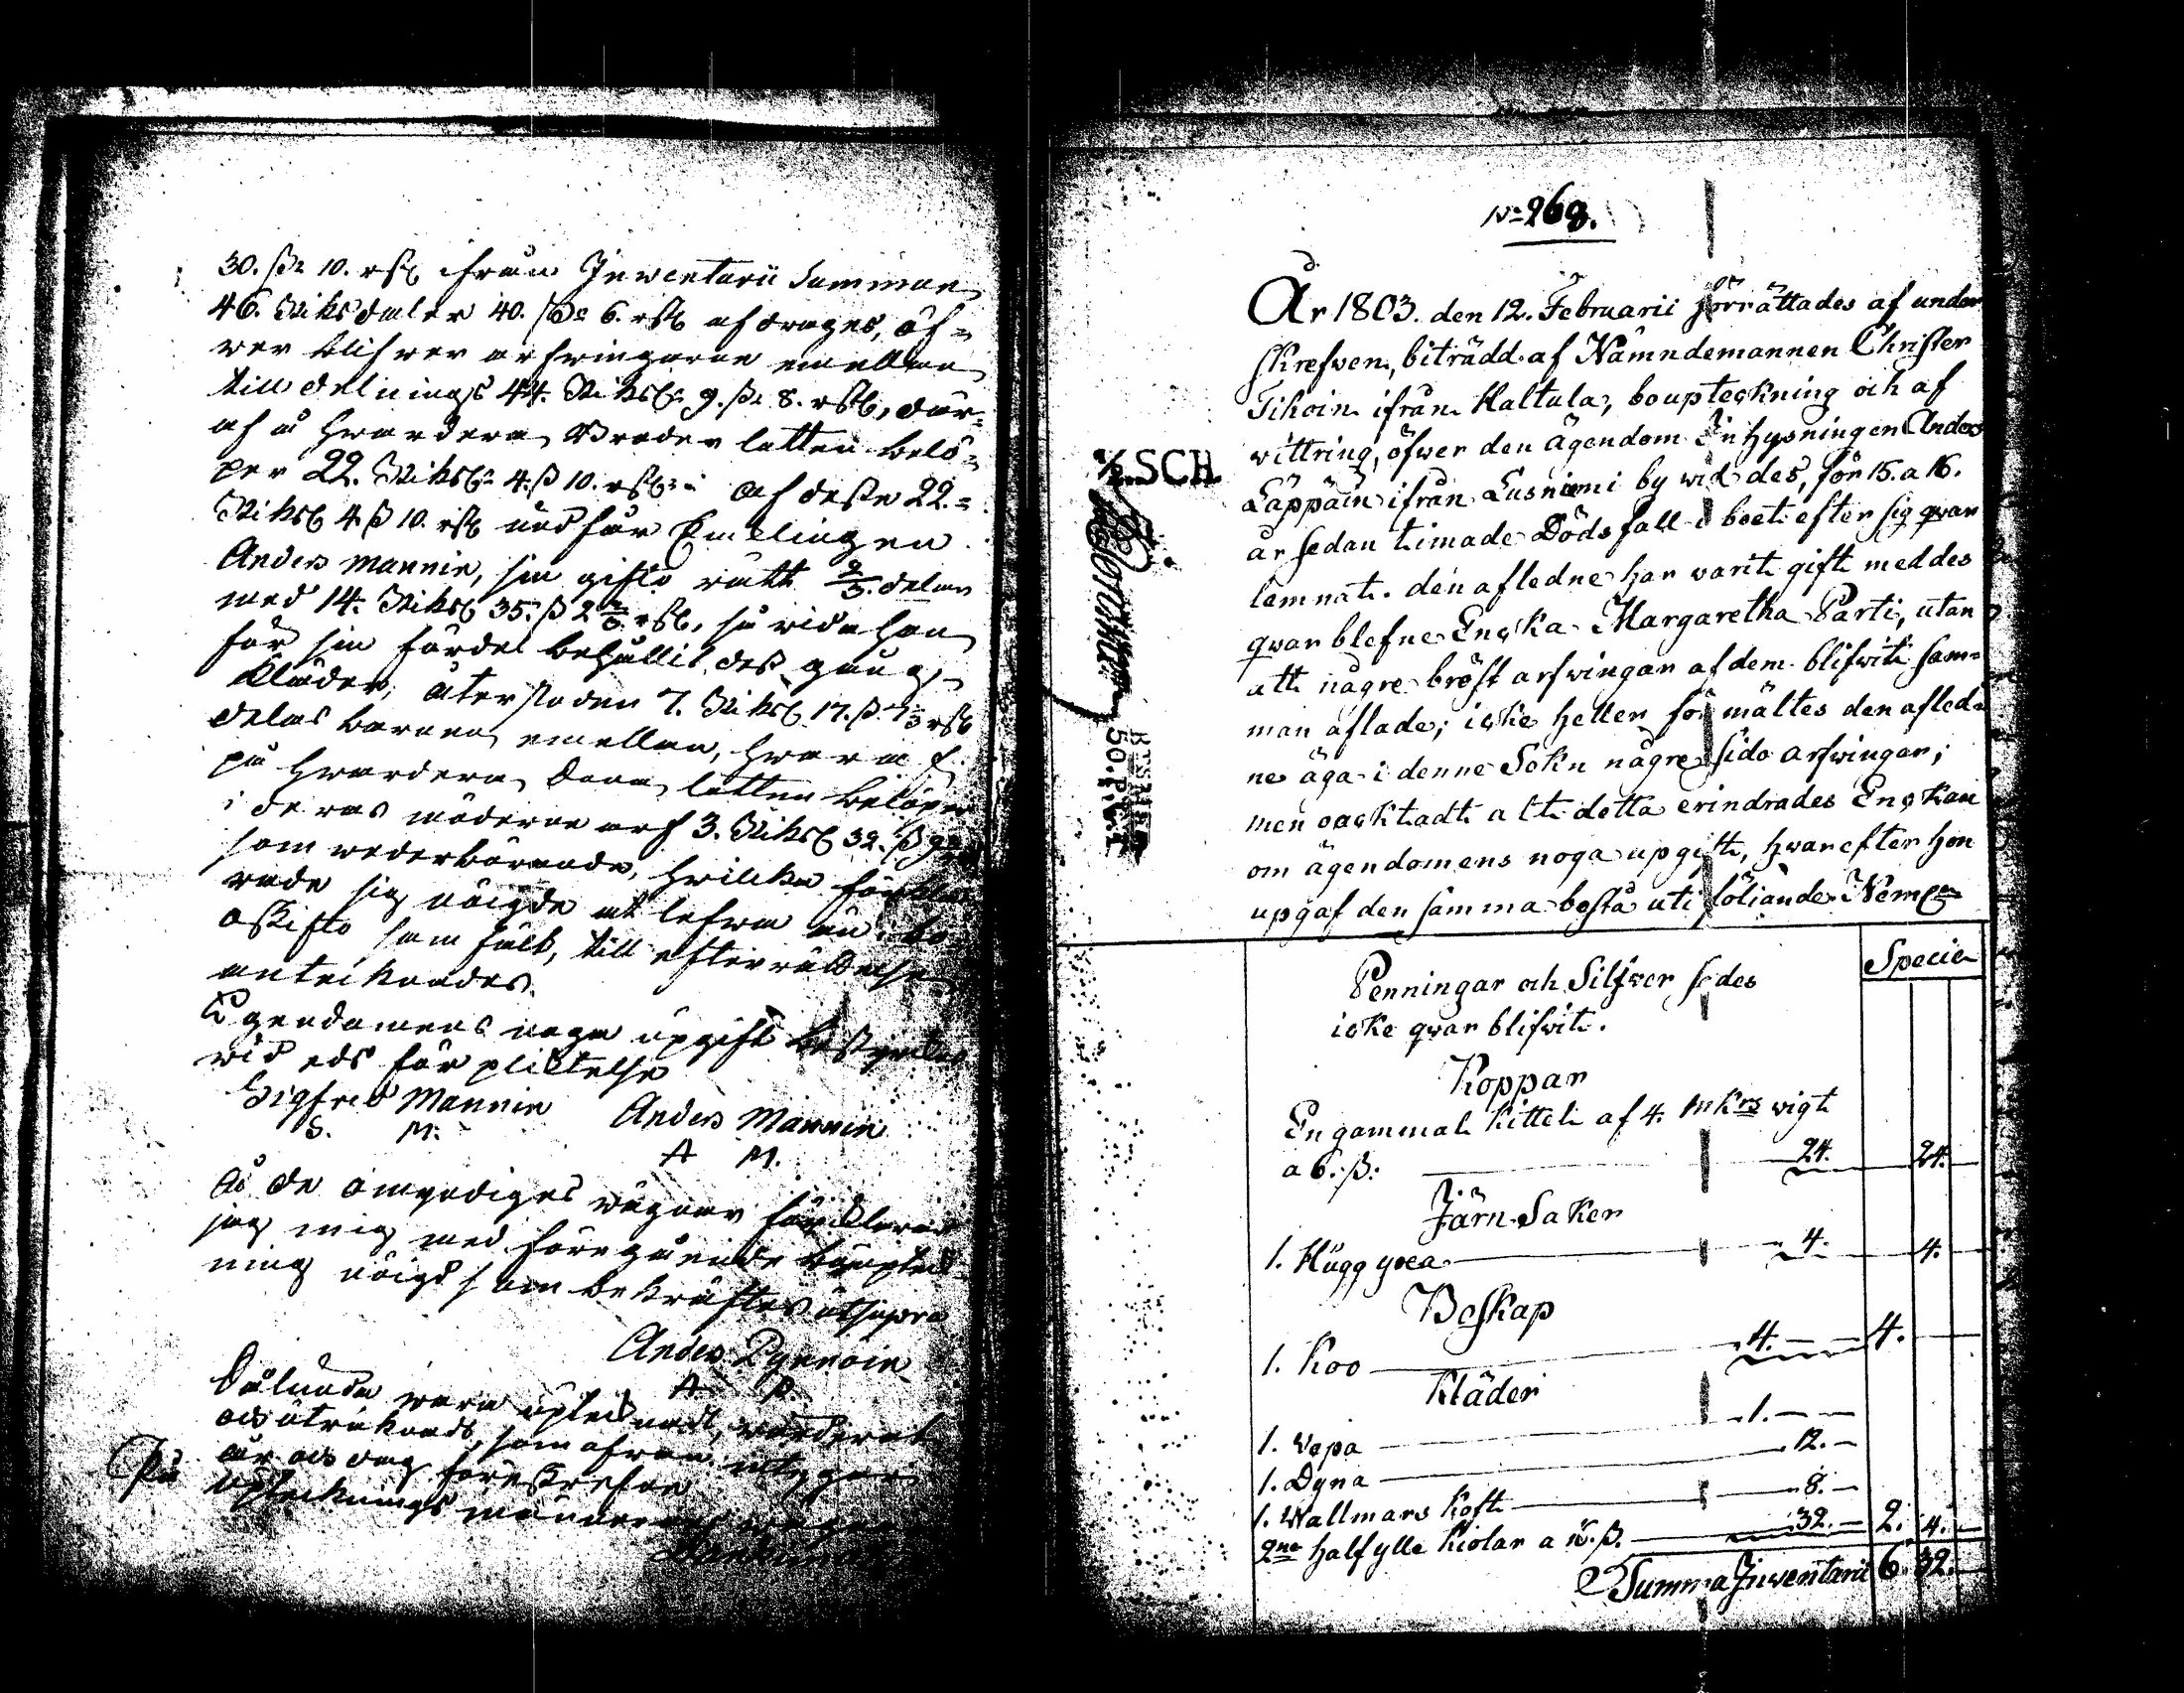 30. ß: 10. rst ifrån Inventarii Summan
46. Riksdaler 40. ß: 6. rst afdrages, öf=
wer blifwer arfwingarne emellan
till delnings 44. Riksd: 9. ß: 8. rst, där=
af å hwardera Broder lotten belö=
per 22. Riksd: 4. ß 10. rst: af desse 22.=
Riksd 4. ß 10. rst undfår Enklingen
Anders Mannin, sin gifto rätt 2/3. delar
med 14. Riksd 35. ß 2 2/3. rst, så wida han
för sin fördel behållit des gång
kläder, återstoden 7. Riksd 17. ß. 7 1/3 rst
delas barnen emellan, hwaraf
på hwardera lotten belöper
i deras möderne arf 3. Riksd 32. ß
som wederbörande, hwilka förkla
rade sig nöigde at lefwa
oskifto som sålt, till efterrättelse
antecknades.
Egendomens noga upgift bestyrkes
wid eds förplicktelse
Sigfred Mannin Anders Mannin
S. M. A M.
På de omyndiges wägnar förklarar
jag mig med föregående boupteck
ning nöigd som bekräftes utsupra
Anders Pynnöin
A P.
Sålunda wara uptecknadt, wärderat
och uträknadt, som ofwan intygar
År och dag föreskrefne
På uptecknings männernes wägnar
No 268.
År 1803. den 12. Februarii förrättades af under
skrefwen, biträdd af Nämndemannen Christer
Tikoin ifrån Kaltula, boupteckning och af
wittring, öfwer den ägendom Inhysningen Anders
Läppäin ifrån Lusniemi by wid des, för 15. a 16.
år sedan timade Dödsfall i boet efter sig qwar
lemnat. den afledne har warit gift med des
qwarblefne Enka Margaretha Parti, utan
att någre bröst arfwingar af dem blifwit sam=
man aflade; icke heller förmältes den afled=
ne äga i denne Sokn någre sido arfwingar;
men oacktadt alt detta erindrades Enckan
om ägendomens noga upgift, hwarefter hon
upgaf den samma bestå uti följande Neml:n
½ SCH.
50. P. C. T
Specie
Penningar och Silfwer sades
icke qwar blifwit.
Koppar
En gammal Kittel af 4. mkrs wigt
a 6. ß: 24. 24.
Järn Saker
1. Hugg yxa 4. 4.
Boskap
1. Koo 4. 4.
Kläder
1. Wepa 1.
1. Dyna 12.
1. Wallmars Koft 8.
2ne halfylle Kiolar a 16. ß. 32. 2. 4.
Summa Inwentarii 6. 32.